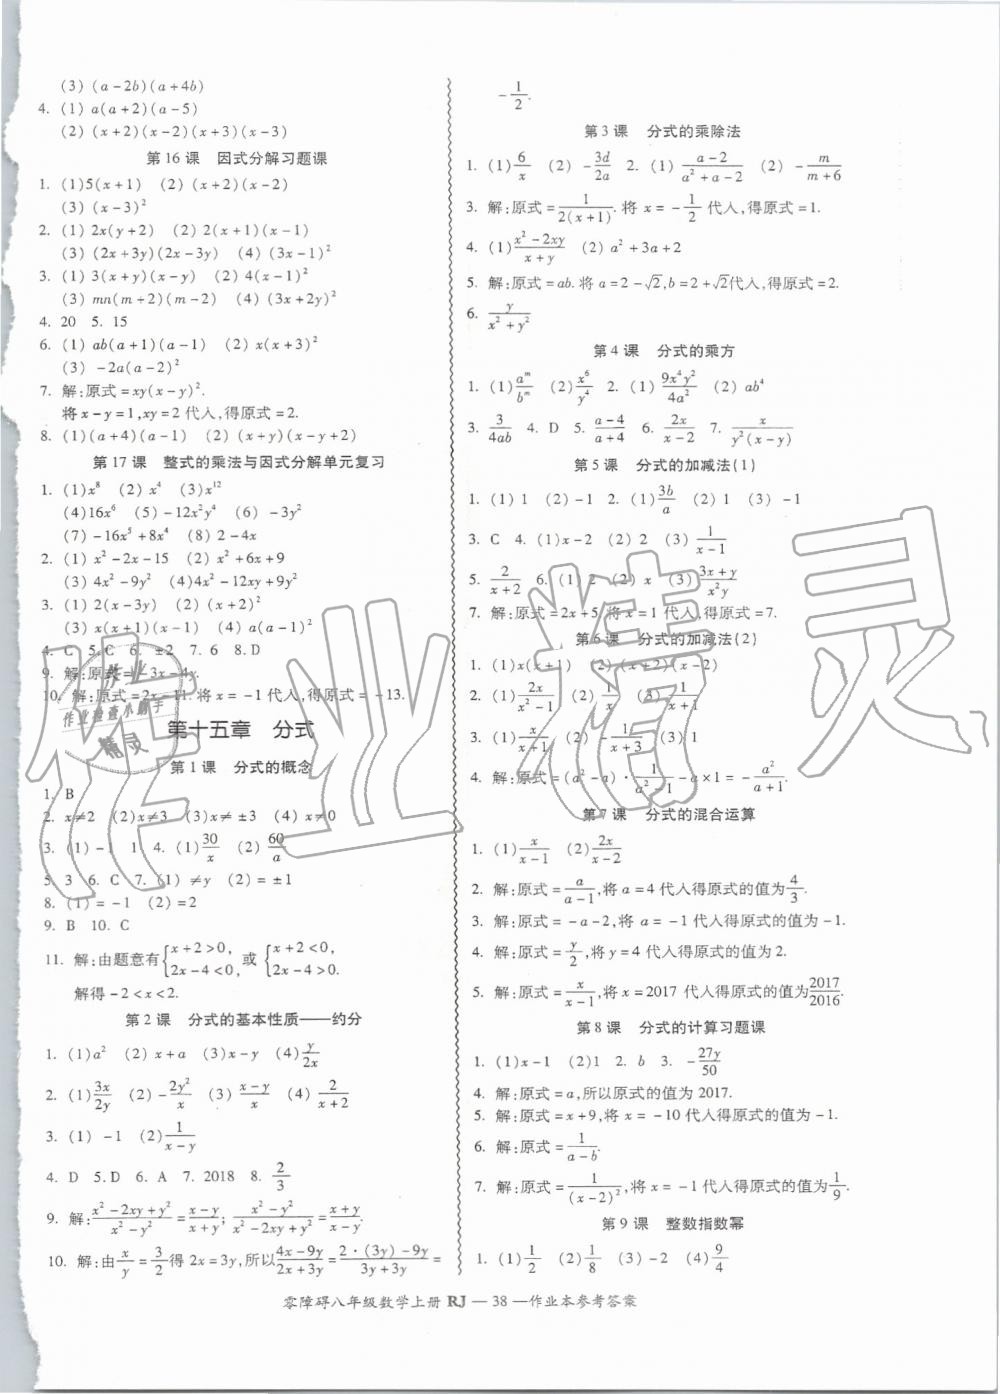 (3) (a-2b)(a+4b)
4. (1) a(a+2)(a-5)
(2) (x+2)(x-2)(x+3)(x-3)
第 16 课 因式分解习题课
1. (1)5(x+1) (2) (x+2)(x-2)
(3) (x-3)²
2. (1) 2x(y+2) (2) 2(x+1)(x-1)
(3) (2x+3y)(2x-3y) (4) (3x-1)²
3. (1) 3(x+y)(x-y) (2) 4(x-1)²
(3) mn(m+2)(m-2) (4) (3x+2y)²
4. 20 5. 15
6. (1) ab(a+1)(a-1) (2) x(x+3)²
(3) -2a(a-2)²
7. 解:原式=xy(x-y)².
将x-y=1,xy=2代入,得原式=2.
8. (1)(a+4)(a-1) (2) (x+y)(x-y+2)
第 17 课 整式的乘法与因式分解单元复习
1. (1)x⁸ (2) x⁴ (3)x¹²
(4)16x⁶ (5) -12x²y⁴ (6) -3y²
(7) -16x⁵+8x⁴ (8) 2-4x
2. (1) x²-2x-15 (2) x²+6x+9
(3) 4x²-9y² (4)4x²-12xy+9y²
3. (1) 2(x-3y) (2) (x+2)²
(3) x(x+1)(x-1) (4) a(a-1)²
4. C 5. C 6. ±2 7. 6 8. D
9. 解:原式=-3x-4y.
10. 解:原式=2x-11.将 x=-1代入,得原式=-13.
第十五章 分式
第 1 课 分式的概念
1. B
2. x≠2 (2)x≠3 (3)x≠±3 (4) x≠0
3. (1) -1 1 4. (1)30/x (2) 60/a
5. 3 6. C 7. (1) ≠y (2)=±1
8. (1)=-1 (2)=2
9. B 10. C
11. 解:由题意有{x+2>0, 2x-4<0, 或 {x+2<0, 2x-4>0.
解得-2<x<2.
第 2 课 分式的基本性质——约分
1. (1)a² (2) x+a (3)x-y (4)y/2x
2. (1)3x/2y (2) -2y²/x (3) (x-y)/(x+y) (4) 2/(x+2)
3. (1) -1 (2)1/(x-y)
4. D 5.D 6. A 7. 2018 8. 2/3
9. 解:(x²-2xy+y²)/(x²-y²)=(x-y)/(x+y); (x²-y²)/(x²-2xy+y²)=(x+y)/(x-y).
10. 解:由x/y=3/2得 2x=3y,所以(4x-9y)/(2x+3y)=(2·(3y)-9y)/(3y+3y)=
-1/2.
第 3 课 分式的乘除法
1. (1)6/x (2) -3d/2a 2. (1) (a-2)/(a²+a-2) (2) -m/(m+6)
3. 解:原式=1/(2(x+1)).将 x=-1/2代入,得原式=1.
4. (1)(x²-2xy)/(x+y) (2) a²+3a+2
5. 解:原式=ab.将 a=2-√2,b=2+√2代入,得原式=2.
6. y/(x²+y²)
第 4 课 分式的乘方
1. (1)aᵐ/bᵐ (2)x⁶/y⁴ 2. (1) 9x⁴y²/4a² (2) ab⁴
3. 3/4ab 4. D 5. (a-4)/(a+4) 6. 2x/(x-2) 7. x/(y²(x-y))
第 5 课 分式的加减法(1)
1. (1) 1 (2) -1 2. (1)3b/a (2) 1 (3) -1
3. C 4. (1)x-2 (2) 2 (3) 1/(x-1)
5. 2/(x+2) 6. (1) 2 (2) x (3) (3x+y)/x²y
7. 解:原式=2x+5,将 x=1 代入,得原式=7.
第 6 课 分式的加减法(2)
1. (1)x(x+1) (2) (x+2)(x-2)
2. (1)2x/(x²-1) (2)1/x (3) 1/(x+1)
3. (1)x/(x+1) (2) -1/(x+3) (3)1
4. 解:原式=(a²-a)·1/(a²-1)-a×1=-a²/(a+1).
第 7 课 分式的混合运算
1. (1)x/(x-1) (2)2x/3
2. 解:原式=a/(a-1),将 a=4 代入得原式的值为4/3.
3. 解:原式=-a-2,将 a=-1 代入得原式的值为-1.
4. 解:原式=y/2,将 y=4 代入得原式的值为 2.
5. 解:原式=x/(x-1),将 x=2017 代入得原式的值为2017/2016.
第 8 课 分式的计算习题课
1. (1)x-1 (2)1 2. b 3. -27y/50
4. 解:原式=a,所以原式的值为 2017.
5. 解:原式=x+9,将 x=-10代入得原式的值为-1.
6. 解:原式=1/(a-b).
7. 解:原式=1/(x-2)²,将 x=-1代入得原式的值为1/9.
第 9 课 整数指数幂
1. (1)1/2 (2)1/8 (3) -2 (4) 9/4
零障碍八年级数学上册 RJ — 38 —作业本参考答案
作业精灵
作业
作业检查小助手
精灵